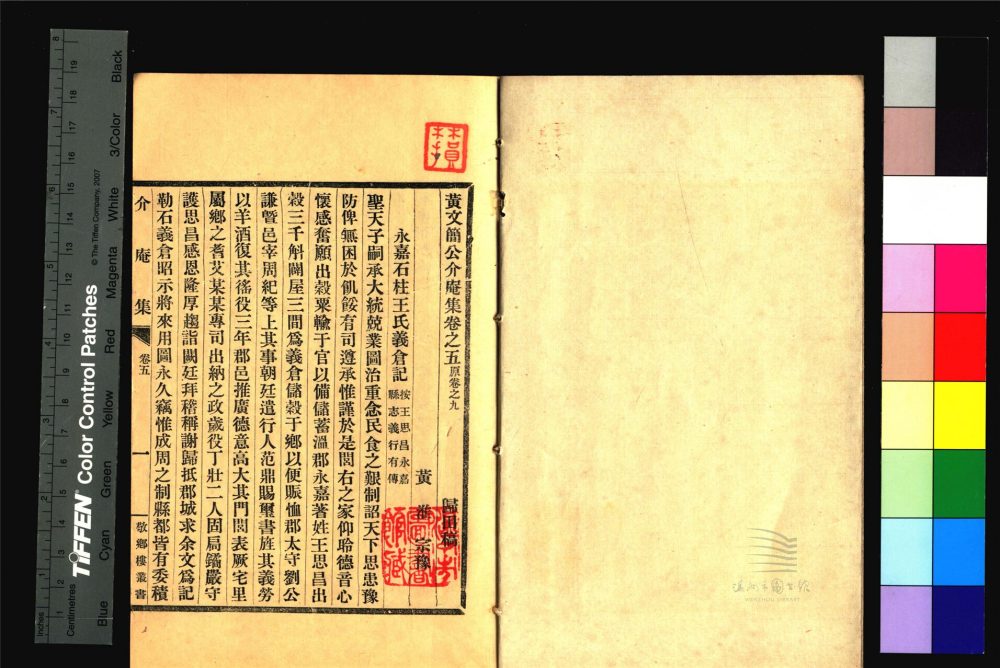 黃文簡公介庵集卷之五原卷之九
歸田稿
黃 淮 宗豫
永嘉石柱王氏義倉記
按王思昌永嘉
縣志義行有傳
聖天子嗣承大統兢業圖治重念民食之艱制詔天下思患豫
防俾無困於飢餒有司遵承惟謹於是閭右之家仰聆德音心
懷感奮願出榖粟輸于官以備儲蓄溫郡永嘉著姓王思昌出
榖三千斛闢屋三間爲義倉儲榖于鄉以便賑恤郡太守劉公
謙曁邑宰周紀等上其事朝廷遣行人范鼎賜璽書旌其義勞
以羊酒復其徭役三年郡邑推廣德意高大其門閭表厥宅里
屬鄉之耆艾某某專司出納之政歲役丁壯二人固扃鐍嚴守
護思昌感恩隆厚趨詣闕廷拜稽稱謝歸抵郡城求余文爲記
勒石義倉昭示將來用圖永久竊惟成周之制縣都皆有委積
介庵集
卷五
一
敬鄉樓叢書
Inches
Centimetres
TIFFEN Color Control Patches
© The Tiffen Company, 2007
Blue
Cyan
Green
Yellow
Red
Magenta
White
3/Color
Black
溫州市圖書館
WENZHOU LIBRARY